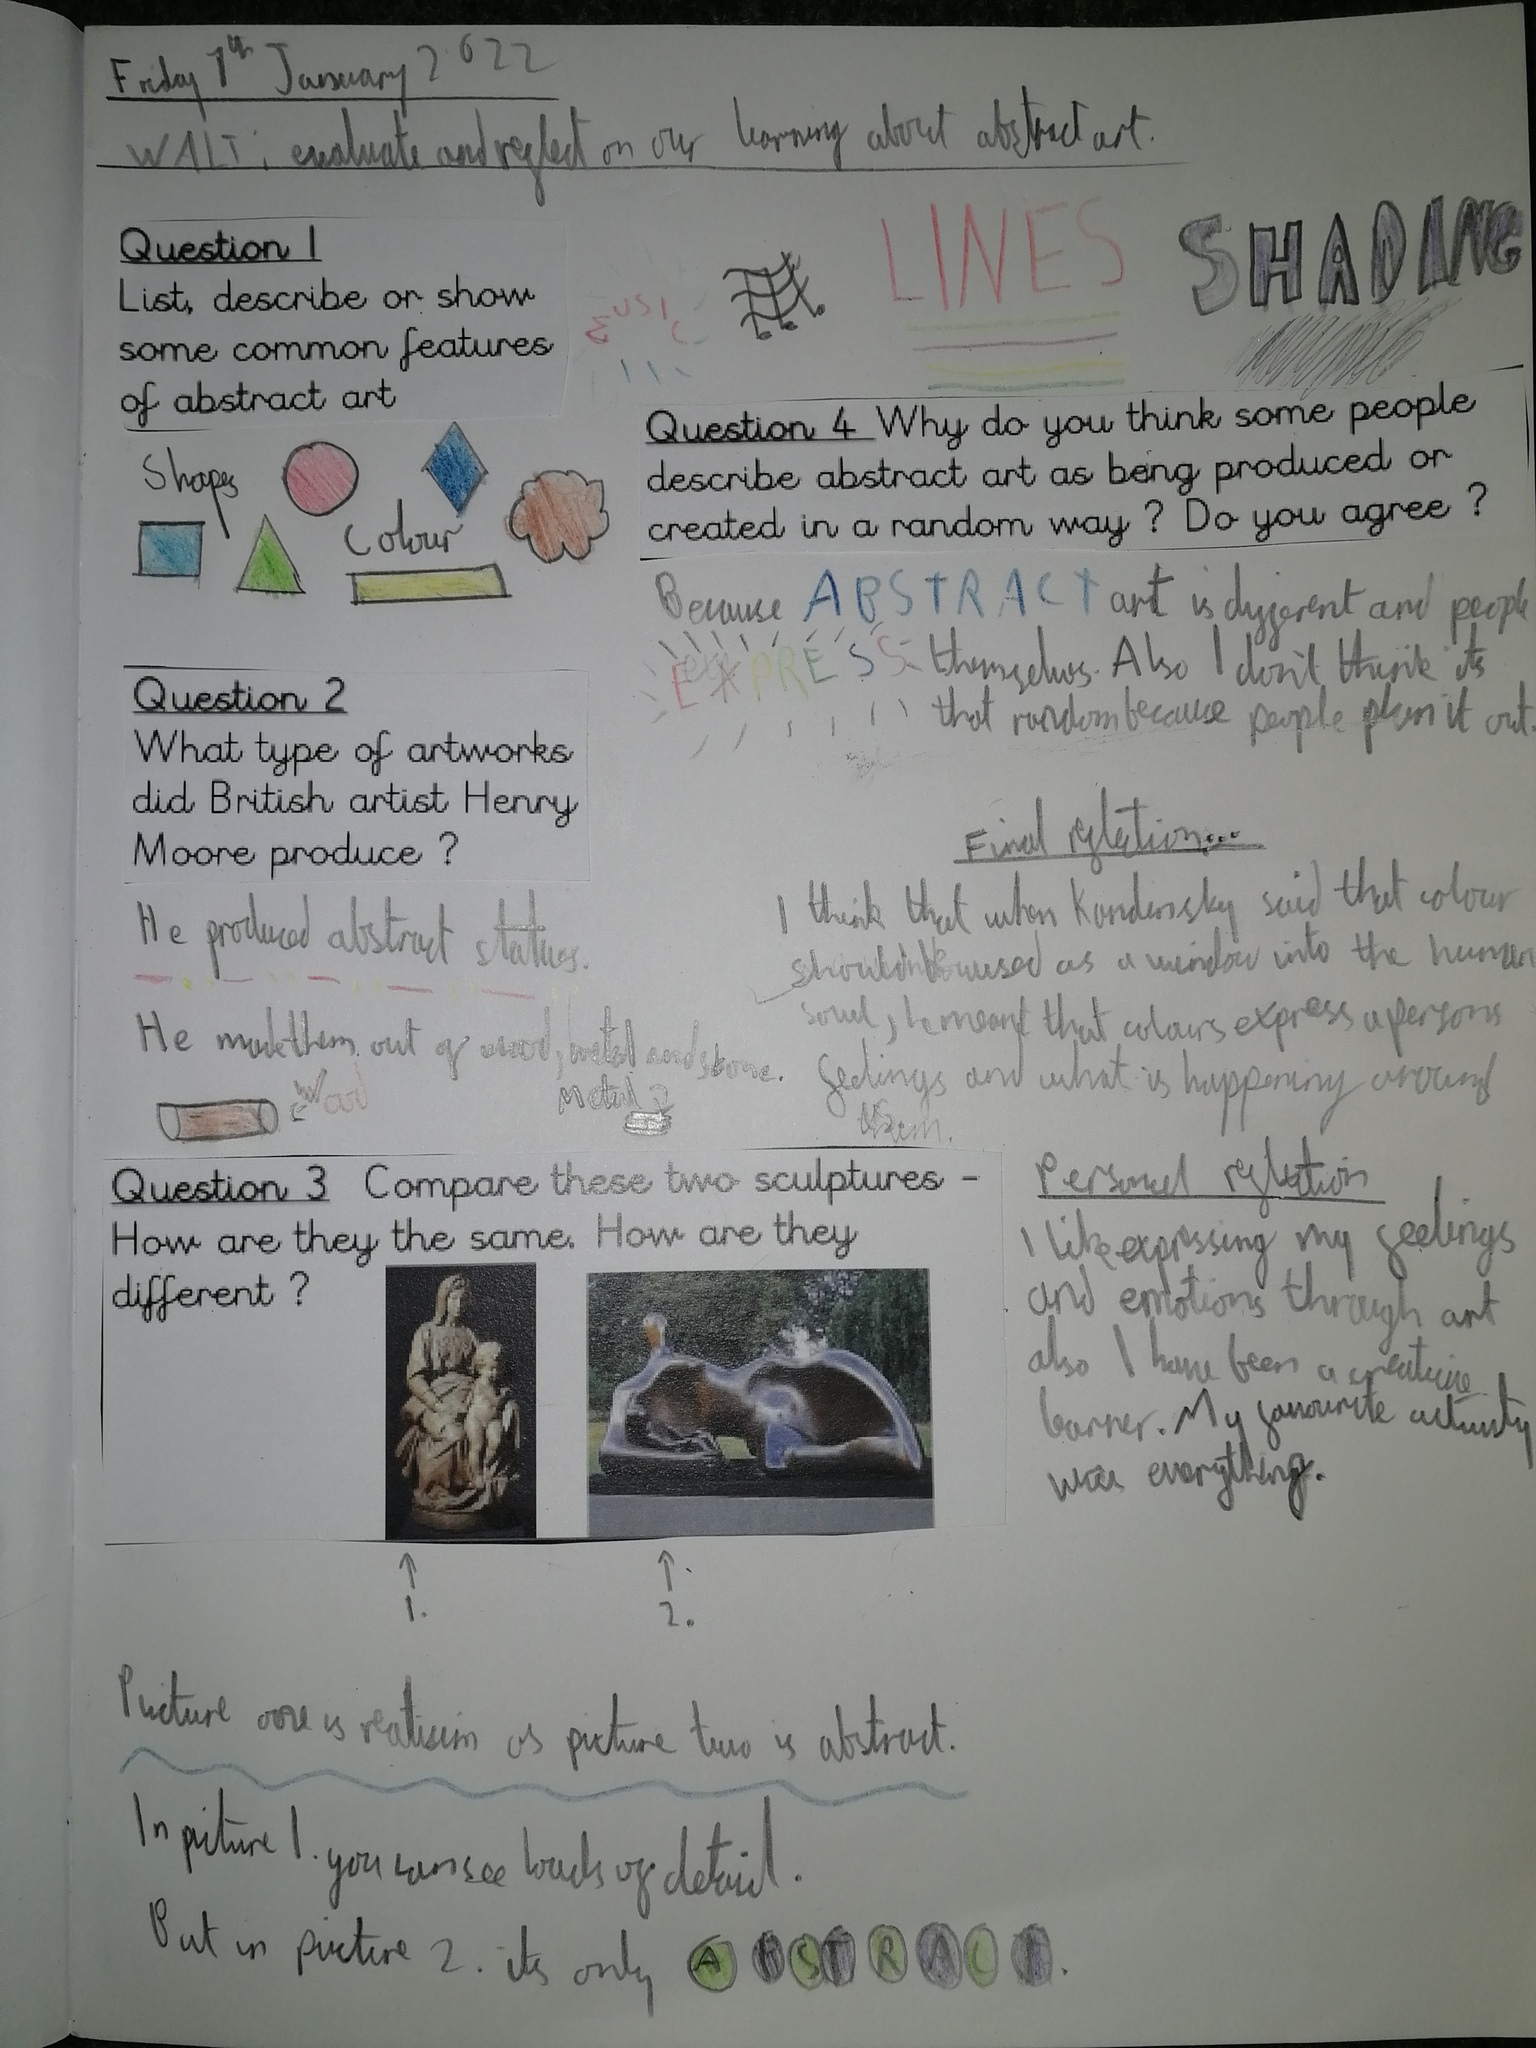 Friday 7th January 2022
WALT: evaluate and reflect on our learning about abstract art.
Question 1
List, describe or show
some common features
of abstract art
MUSIC
LINES
SHADING
Shapes
Colour
Question 2
What type of artworks
did British artist Henry
Moore produce ?
He produced abstract statues.
He made them out of wood, metal and stone.
Wood
Metal
Question 3 Compare these two sculptures -
How are they the same. How are they
different ?
1.
2.
Picture one is realisim as picture two is abstract.
In picture 1. you can see loads of detail.
But in picture 2. its only ABSTRACT.
Question 4 Why do you think some people
describe abstract art as being produced or
created in a random way ? Do you agree ?
Because ABSTRACT art is different and people
EXPRESS themselves. Also I don't think its
that random because people plan it out.
Final refletion...
I think that when Kandensky said that colour
should be used as a window into the human
soul, he meant that colours express a persons
feelings and what is happening around
them.
Personal refletion
I like expressing my feelings
and emotions through art
also I have been a creative
learner. My favourite activity
was everything.